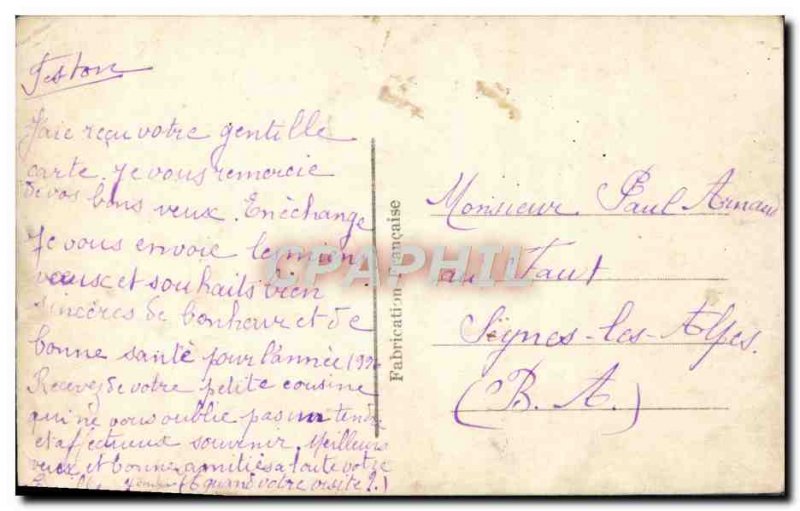 J'aie reçu votre gentille
carte. Je vous remercie
de vos bons veux. En échange
Je vous envoie les mien
veaux et souhaits bien
sincères de bonheur et de
bonne santé pour l'année
Recevez de votre petite cousine
qui ne vous oublie pas un tendre
et affectueux souvenir. Meilleurs
veux et bonne amitiés a toute votre
quand votre visite ?)
Fabrication Française
CPAPHIL
Monsieur Paul Arnaud
au Taut
Seynes-les-Alpes.
(B. A.)